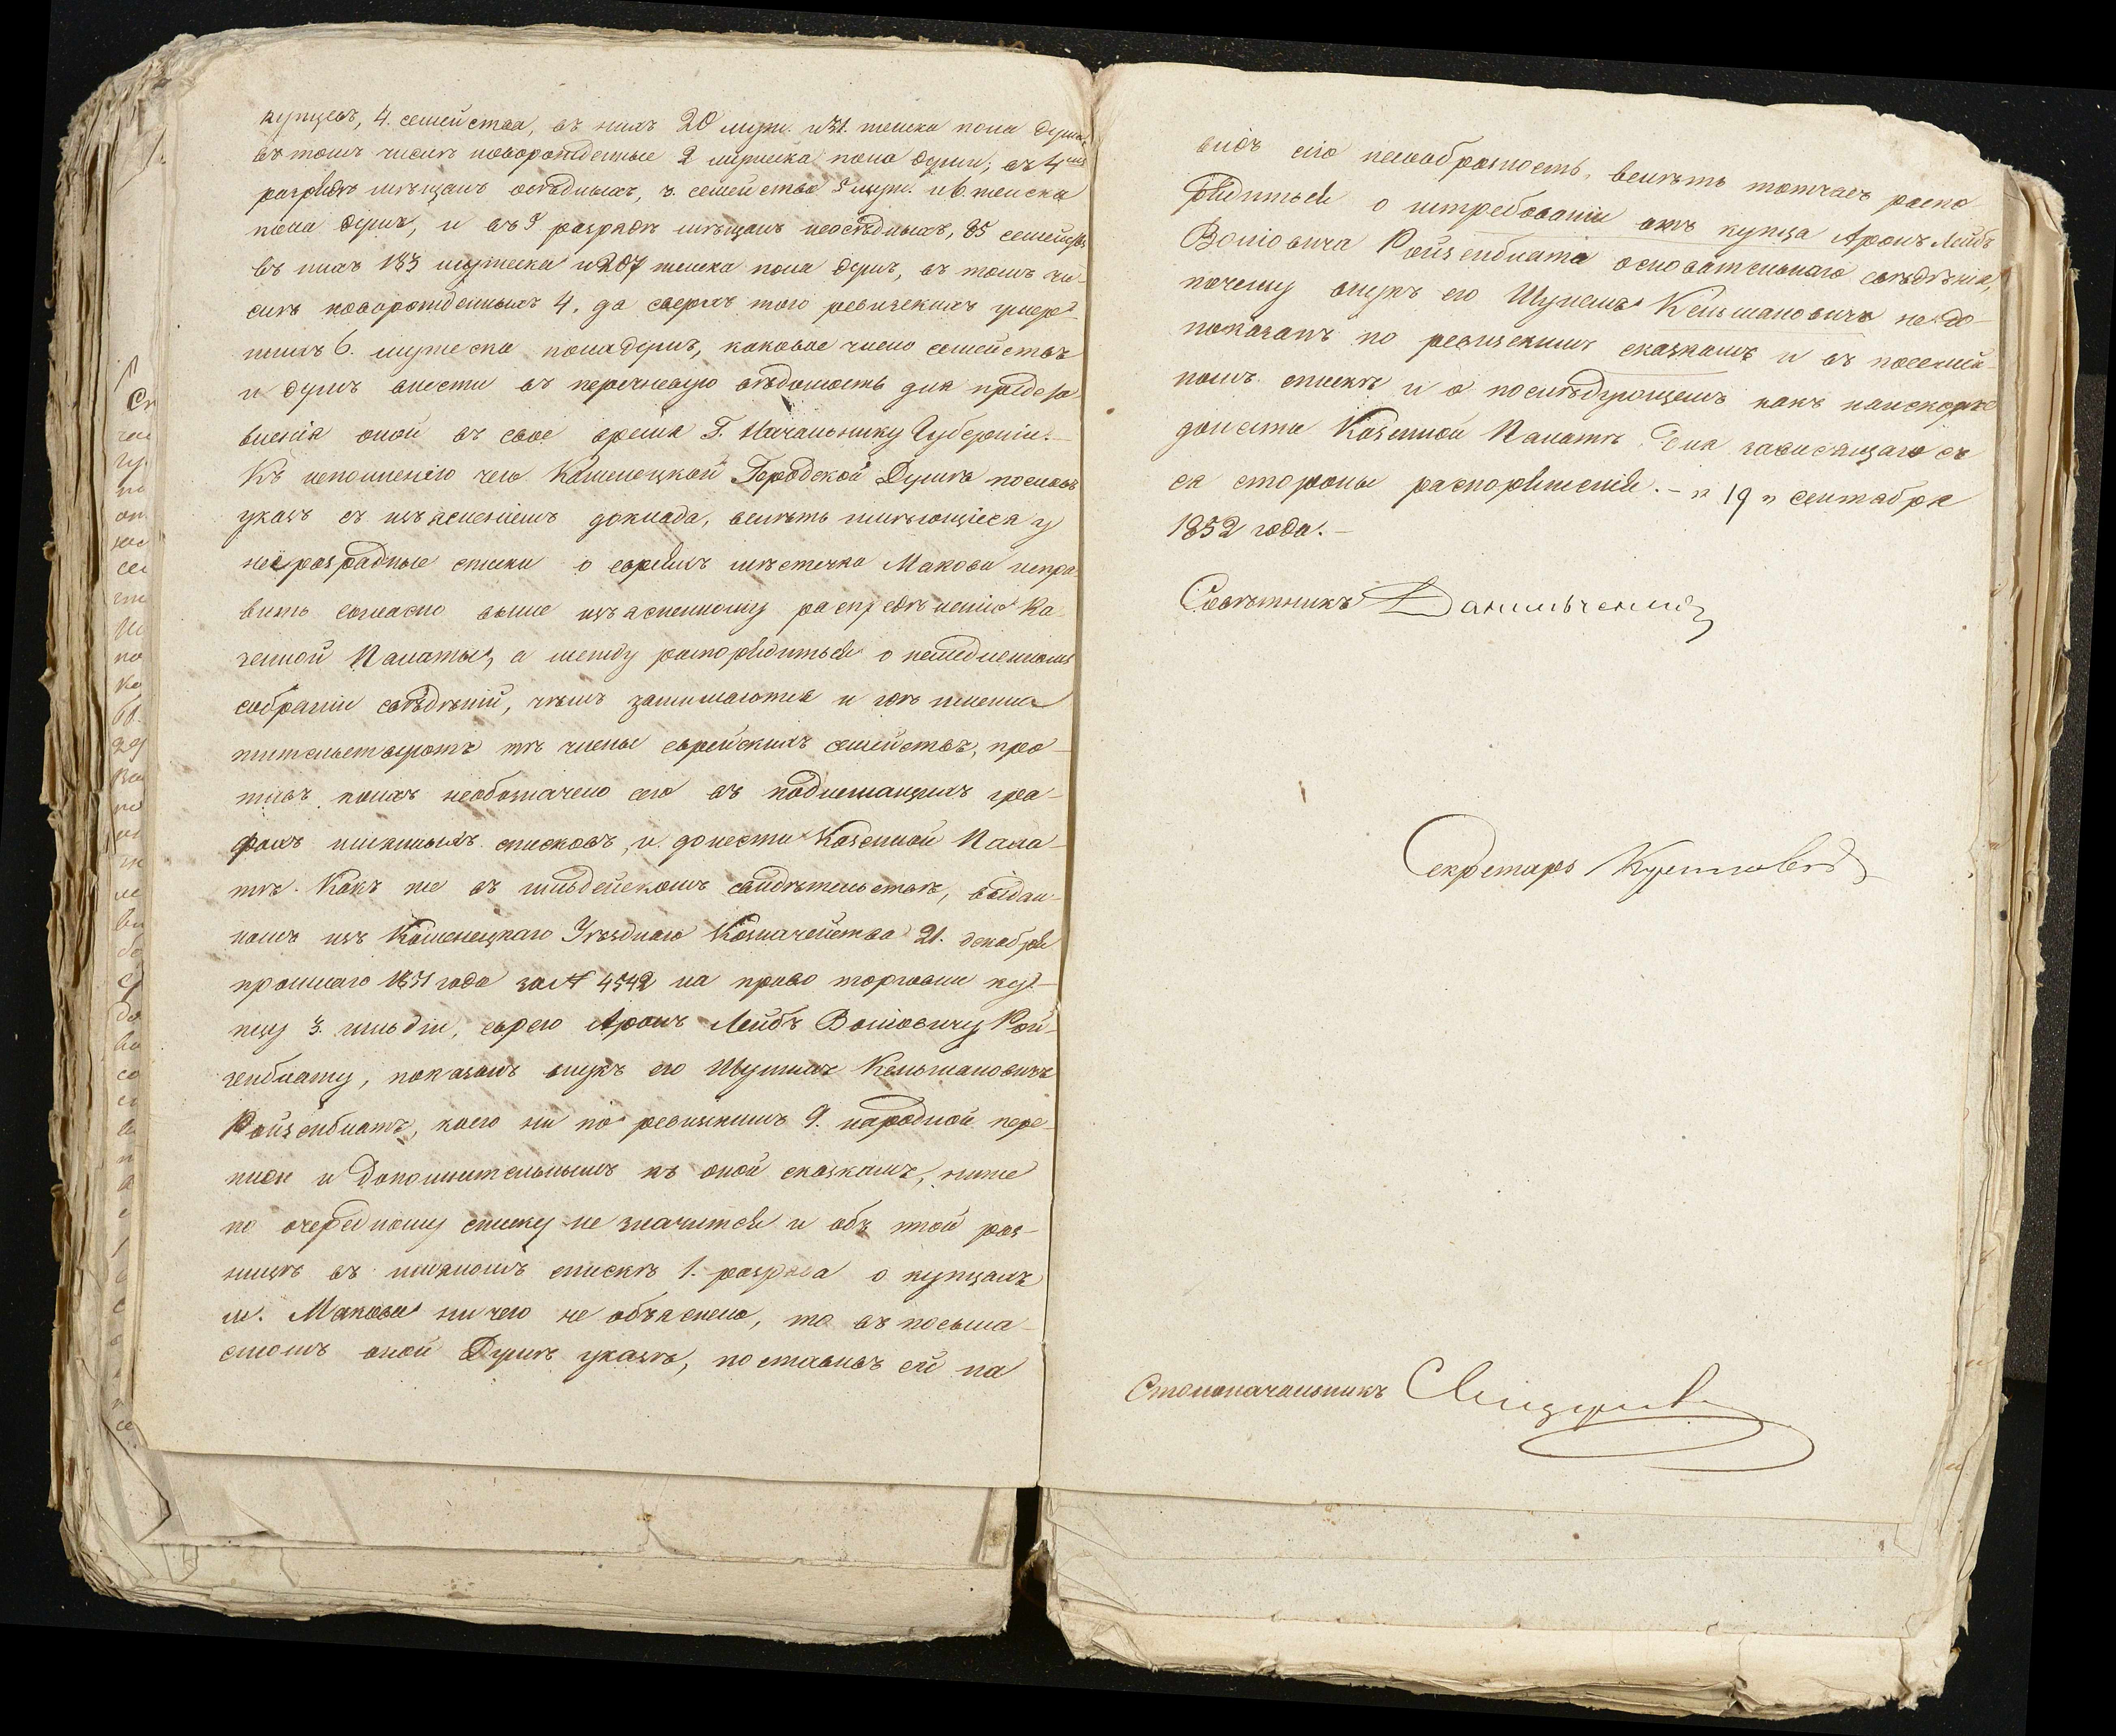 купцовъ, 4. семейства, въ нихъ 20 муж. и 31. женска пола душъ,
въ томъ числѣ новорожденные 2 мужеска пола души; въ 4мъ
разрядѣ мѣщанъ осѣдлыхъ, 3. семейства 5 муж. и 6. женска
пола душъ, и въ 5 разрядѣ мѣщанъ неосѣдлыхъ, 85 семействъ
въ нихъ 183 мужеска и 207 женска пола душъ, въ томъ чи-
слѣ новорожденныхъ 4, да сверхъ того ревизскихъ умер-
шихъ 6. мужеска пола душъ, каковое число семействъ
и душъ внести въ перечневую вѣдомость для предста-
вленія оной въ свое время Г. Начальнику Губерніи.—
Къ исполненію чего Каменецкой Городской Думѣ пославъ
указъ съ изъясненіемъ доклада, велѣть имѣющіеся у
неё разрядные списки о евреяхъ мѣстечка Макова испра-
вить согласно выше изъясненному распредѣленію Ка-
зенной Палаты, а между распорядиться о немедленномъ
собраніи свѣдѣній, чѣмъ занимаются и гдѣ именно
жительствуютъ тѣ члены еврейскихъ семействъ, про-
тивъ коихъ необозначено сего въ подлежащихъ гра-
фахъ списковъ, и донести Казенной Пала-
тѣ. Какъ же въ гильдейскомъ свидѣтельствѣ, выдан-
номъ изъ Каменецкаго Уѣзднаго Казначейства 21. декабря
прошлаго 1851 года за № 4542 на право торговли куп-
цу 3. гильдіи, еврею Аронъ Лейбѣ Волювичу Рой-
зенблату, показанъ внукъ его Шулимъ Кельмановичъ
Ройзенблатъ, коего ни по ревизкимъ 9. народной пере-
писи и дополнительнымъ къ оной сказкамъ, ниже
по очередному списку не значится и объ этой раз-
ницѣ въ списокѣ 1. разряда о купцахъ
м. Макова ничего не объяснено, то въ посыла-
емомъ оной Думѣ указѣ, поставивъ ей на
видъ сію несообразность, велѣть тотчасъ распо-
рядиться о истребованіи отъ купца Аронъ Лейбы
Волювича Ройзенблата основательнаго свѣдѣнія,
почему внукъ его Шулимъ Кельмановичъ не до-
показанъ по ревизскимъ сказкамъ и въ посемей-
номъ спискѣ и о послѣдующемъ какъ наискорѣе
донести Казенной Палатѣ, для зависящаго съ
ея стороны распоряженія.— „19„ сентября
1852 года.—
Совѣтникъ Данильченко
Секретарь
Столоначальникъ